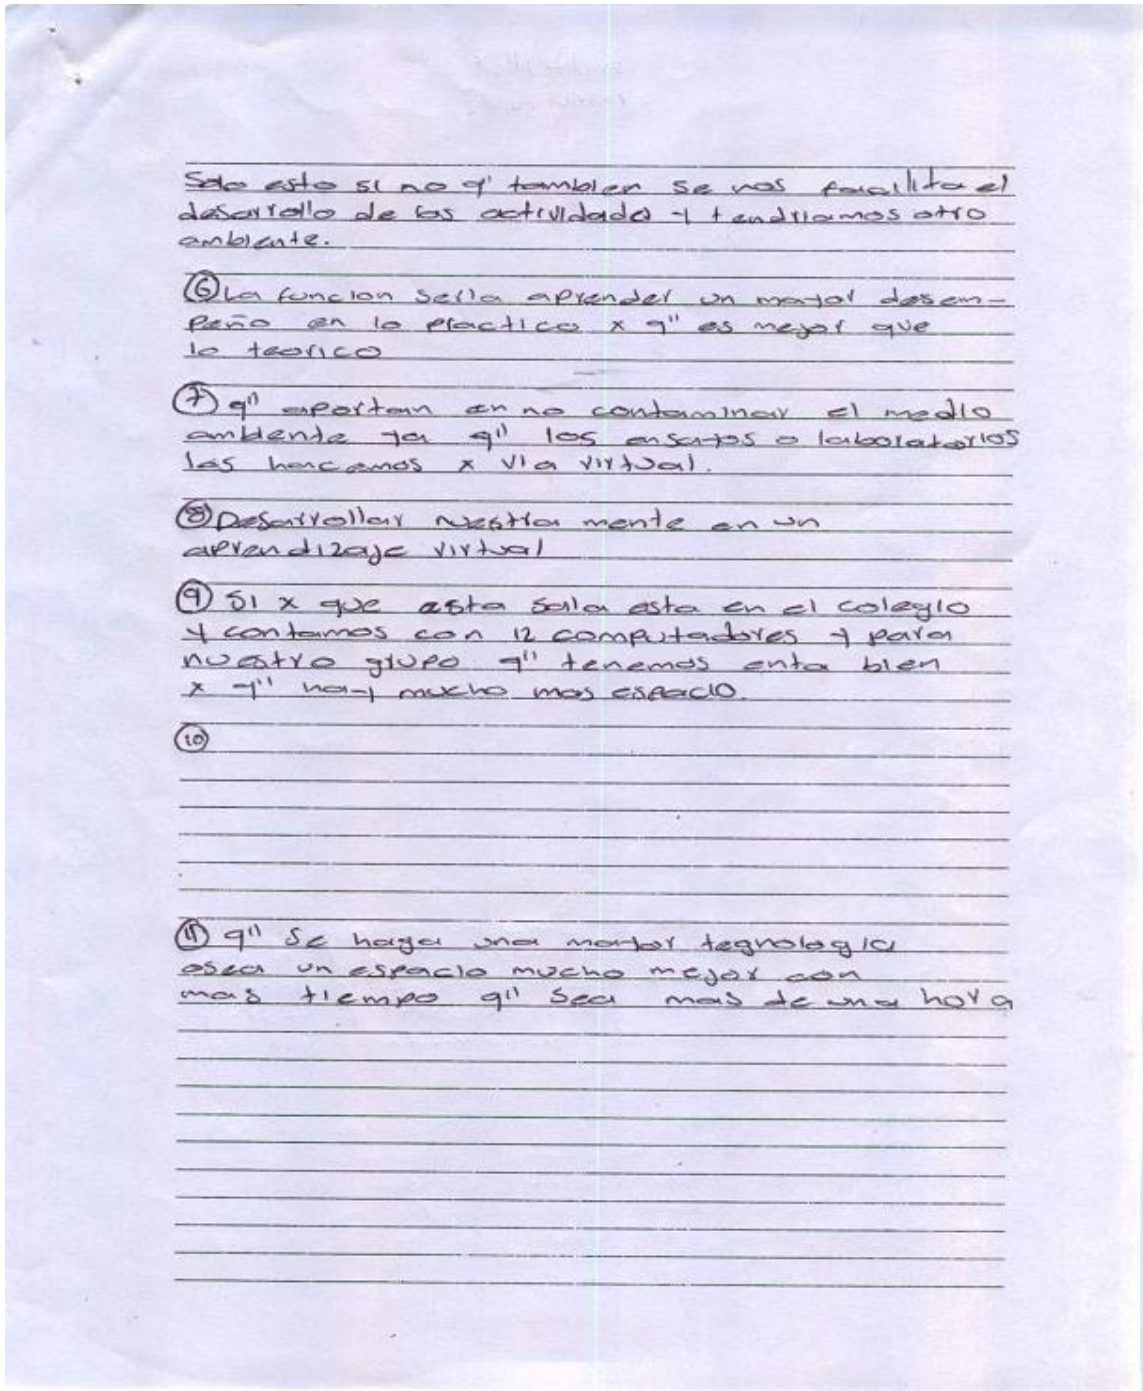 Solo esto si no q' tambien se nos facilita el
desarrollo de las actividades y tendriamos otro
ambiente.
⑥ La funcion seria aprender un mayor desem-
peño en lo practico x q" es mejor que
lo teorico
⑦ q" aportan en no contaminar el medio
ambiente ya q" los ensayos o laboratorios
los hacemos x via virtual.
⑧ Desarrollar nuestra mente en un
aprendizaje virtual
⑨ Si x que esta sala esta en el colegio
y contamos con 12 computadores y para
nuestro grupo q" tenemos enta bien
x q" hay mucho mas espacio.
⑩
⑪ q" se haga una mayor tegnologia
osea un espacio mucho mejor con
mas tiempo q" sea mas de una hora